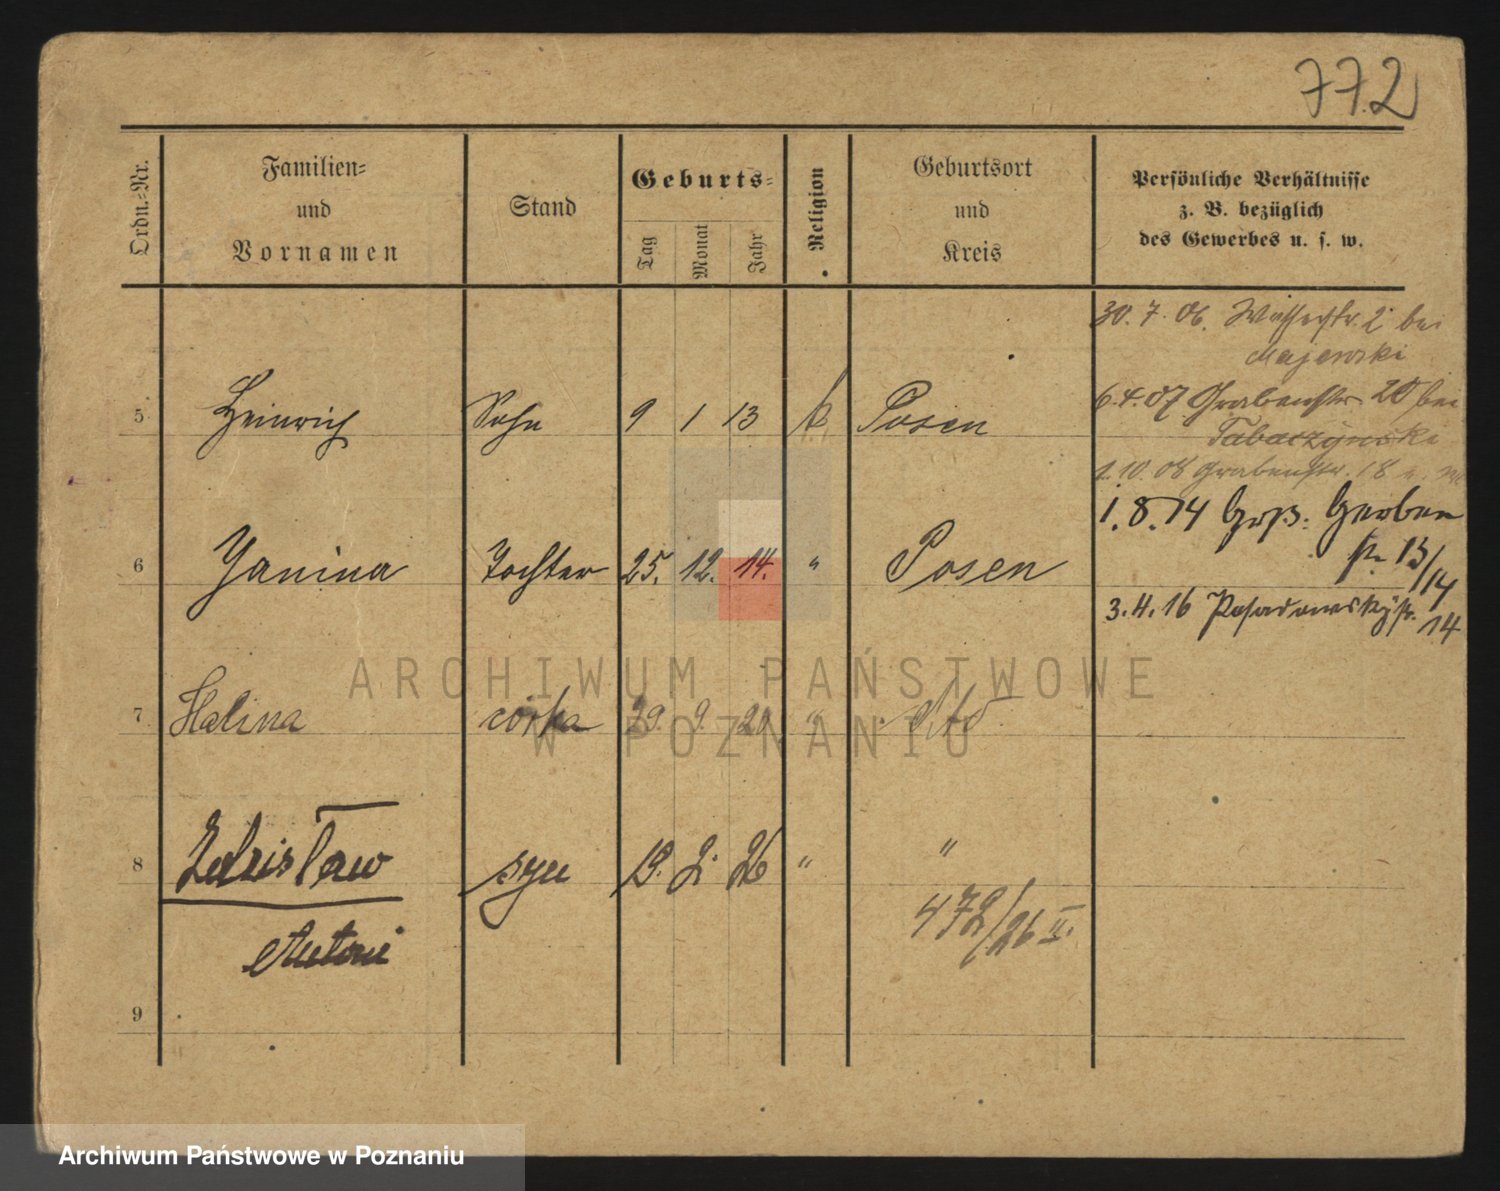 772
Ordn.-Nr.
Familien-
und
Vornamen
Stand
Geburts-
Tag
Monat
Jahr
Religion
Geburtsort
und
Kreis
Persönliche Verhältnisse
z. B. bezüglich
des Gewerbes u. s. w.
30. 7. 06. 2 bei
Majewski
5 Heinrich Sohn 9 1 13 k Posen
6.4.07 Grabenstr 20 bei
Tabaczynski
1.10.08 Grabenstr. 18
1.8.14 Gerber
str 13/14
6 Janina Tochter 25. 12. 14. " Posen
3.4.16 Posadowskystr.
14
7 Halina córka 29. 9. 20 " dto
8 Zdzisław syn 19. 2. 26 " "
472/26 II.
Antoni
9
ARCHIWUM PAŃSTWOWE
W POZNANIU
Archiwum Państwowe w Poznaniu